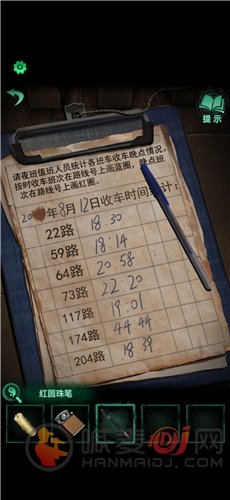 提示
请夜班值班人员统计各班车收车晚点情况,
按时收车班次在路线号上画蓝圈,晚点班
次在路线号上画红圈。
年8月12日收车时间统计:
22路 18.30
59路 18:14
64路 20.58
73路 22.20
117路 19:01
174路 44 44
204路 18 39
红圆珠笔
HANMAIDJ.COM